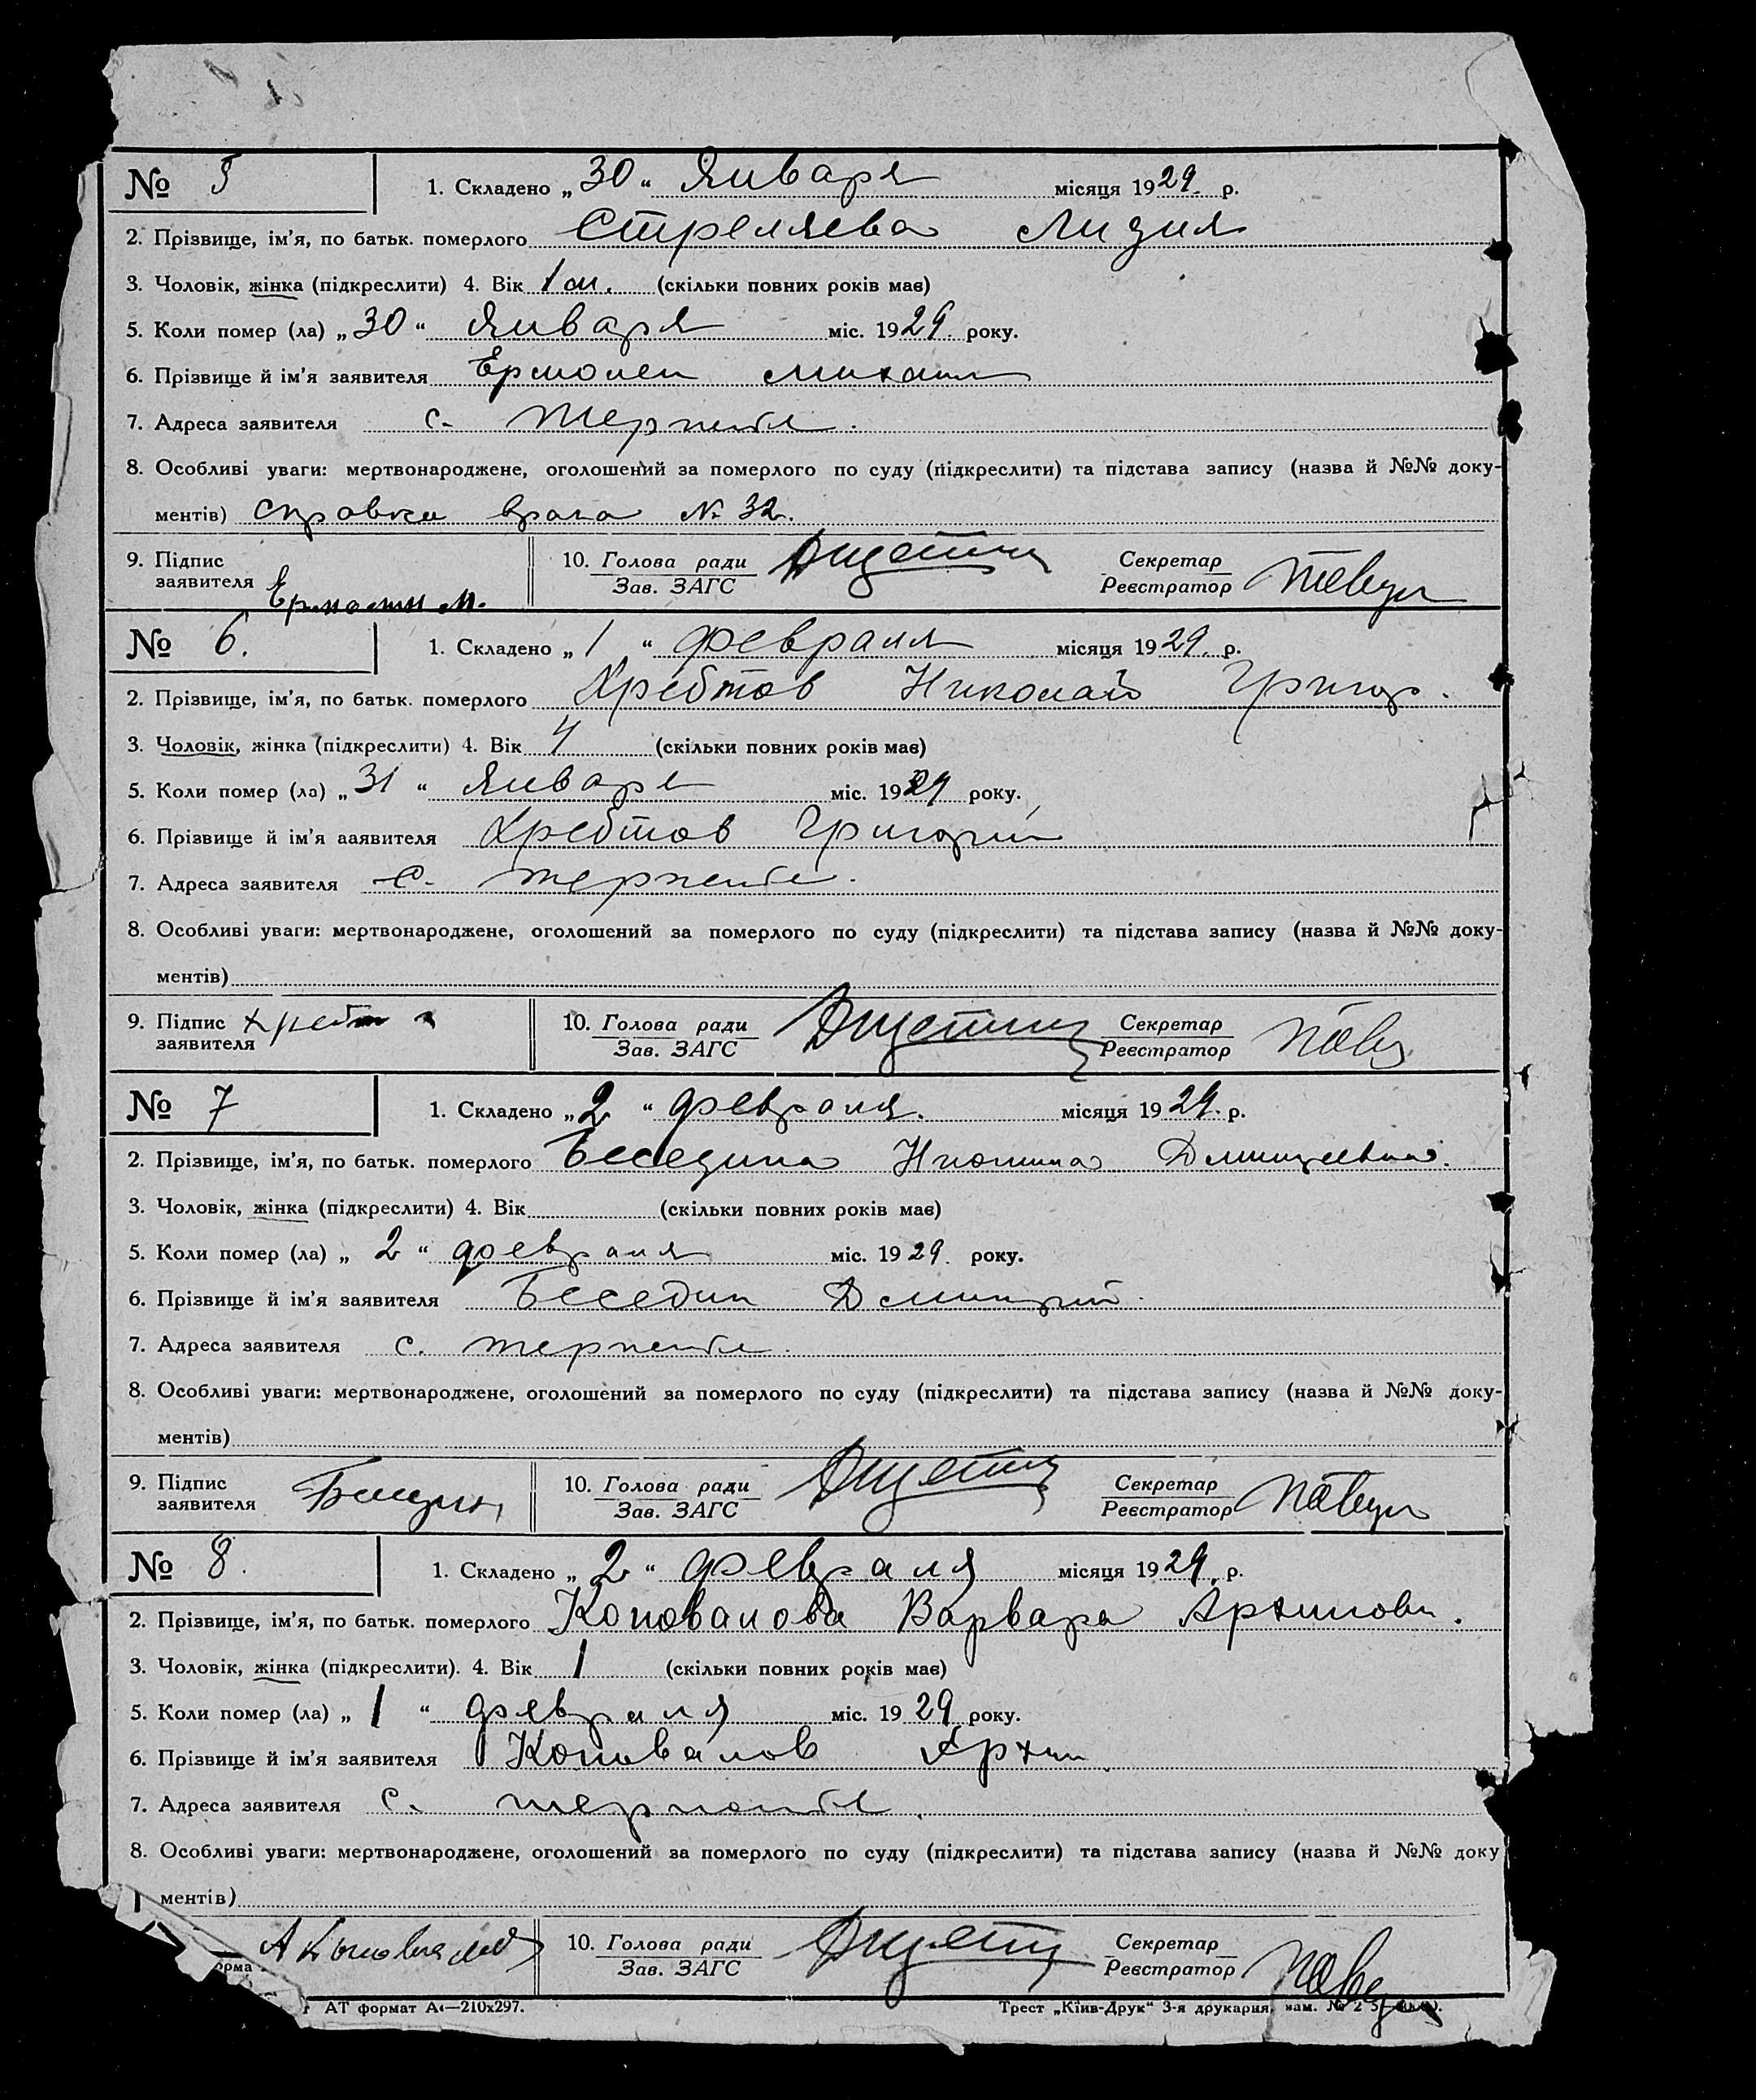 № 5 1. Складено „30“ Января місяця 1929. р.
2. Прізвище, ім’я, по батьк. померлого Стреляева Лидия
3. Чоловік, жінка (підкреслити) 4. Вік 1 м. (скільки повних років має)
5. Коли помер (ла) „30“ Января міс. 1929. року.
6. Прізвище й ім’я заявителя Михаил
7. Адреса заявителя с. Терпенье.
8. Особливі уваги: мертвонароджене, оголошений за померлого по суду (підкреслити) та підстава запису (назва й №№ доку-
ментів) справка врача № 32.
9. Підпис 10. Голова ради Секретар
заявителя Зав. ЗАГС Реєстратор
№ 6. 1. Складено „1“ февраля місяця 1929. р.
2. Прізвище, ім’я, по батьк. померлого Хребтов Николай Григор.
3. Чоловік, жінка (підкреслити) 4. Вік 4 (скільки повних років має)
5. Коли помер (ла) „31“ Января міс. 1929 року.
6. Прізвище й ім’я ааявителя Хребтов Григорий
7. Адреса заявителя с. терпенье.
8. Особливі уваги: мертвонароджене, оголошений за померлого по суду (підкреслити) та підстава запису (назва й №№ доку-
ментів)
9. Підпис 10. Голова ради Секретар
заявителя Зав. ЗАГС Реєстратор
№ 7 1. Складено „2“ февраля. місяця 1929. р.
2. Прізвище, ім’я, по батьк. померлого Беседина Дмитриевна.
3. Чоловік, жінка (підкреслити) 4. Вік (скільки повних років має)
5. Коли помер (ла) „2“ февраля міс. 1929. року.
6. Прізвище й ім’я заявителя Беседин Дмитрий.
7. Адреса заявителя с. терпенье.
8. Особливі уваги: мертвонароджене, оголошений за померлого по суду (підкреслити) та підстава запису (назва й №№ доку-
ментів)
9. Підпис 10. Голова ради Секретар
заявителя Беседин Зав. ЗАГС Реєстратор
№ 8. 1. Складено „2“ февраля місяця 1929. р.
2. Прізвище, ім’я, по батьк. померлого Коновалова Варвара Архиповн.
3. Чоловік, жінка (підкреслити). 4. Вік 1 (скільки повних років має)
5. Коли помер (ла) „1“ февраля міс. 1929 року.
6. Прізвище й ім’я заявителя Коновалов Архип
7. Адреса заявителя с. терпенье.
8. Особливі уваги: мертвонароджене, оголошений за померлого по суду (підкреслити) та підстава запису (назва й №№ доку
ментів)
А Коновалов 10. Голова ради Секретар
орма Зав. ЗАГС Реєстратор
АТ формат А4—210x297. Трест „Київ-Друк“ 3-я друкарня, зам. №